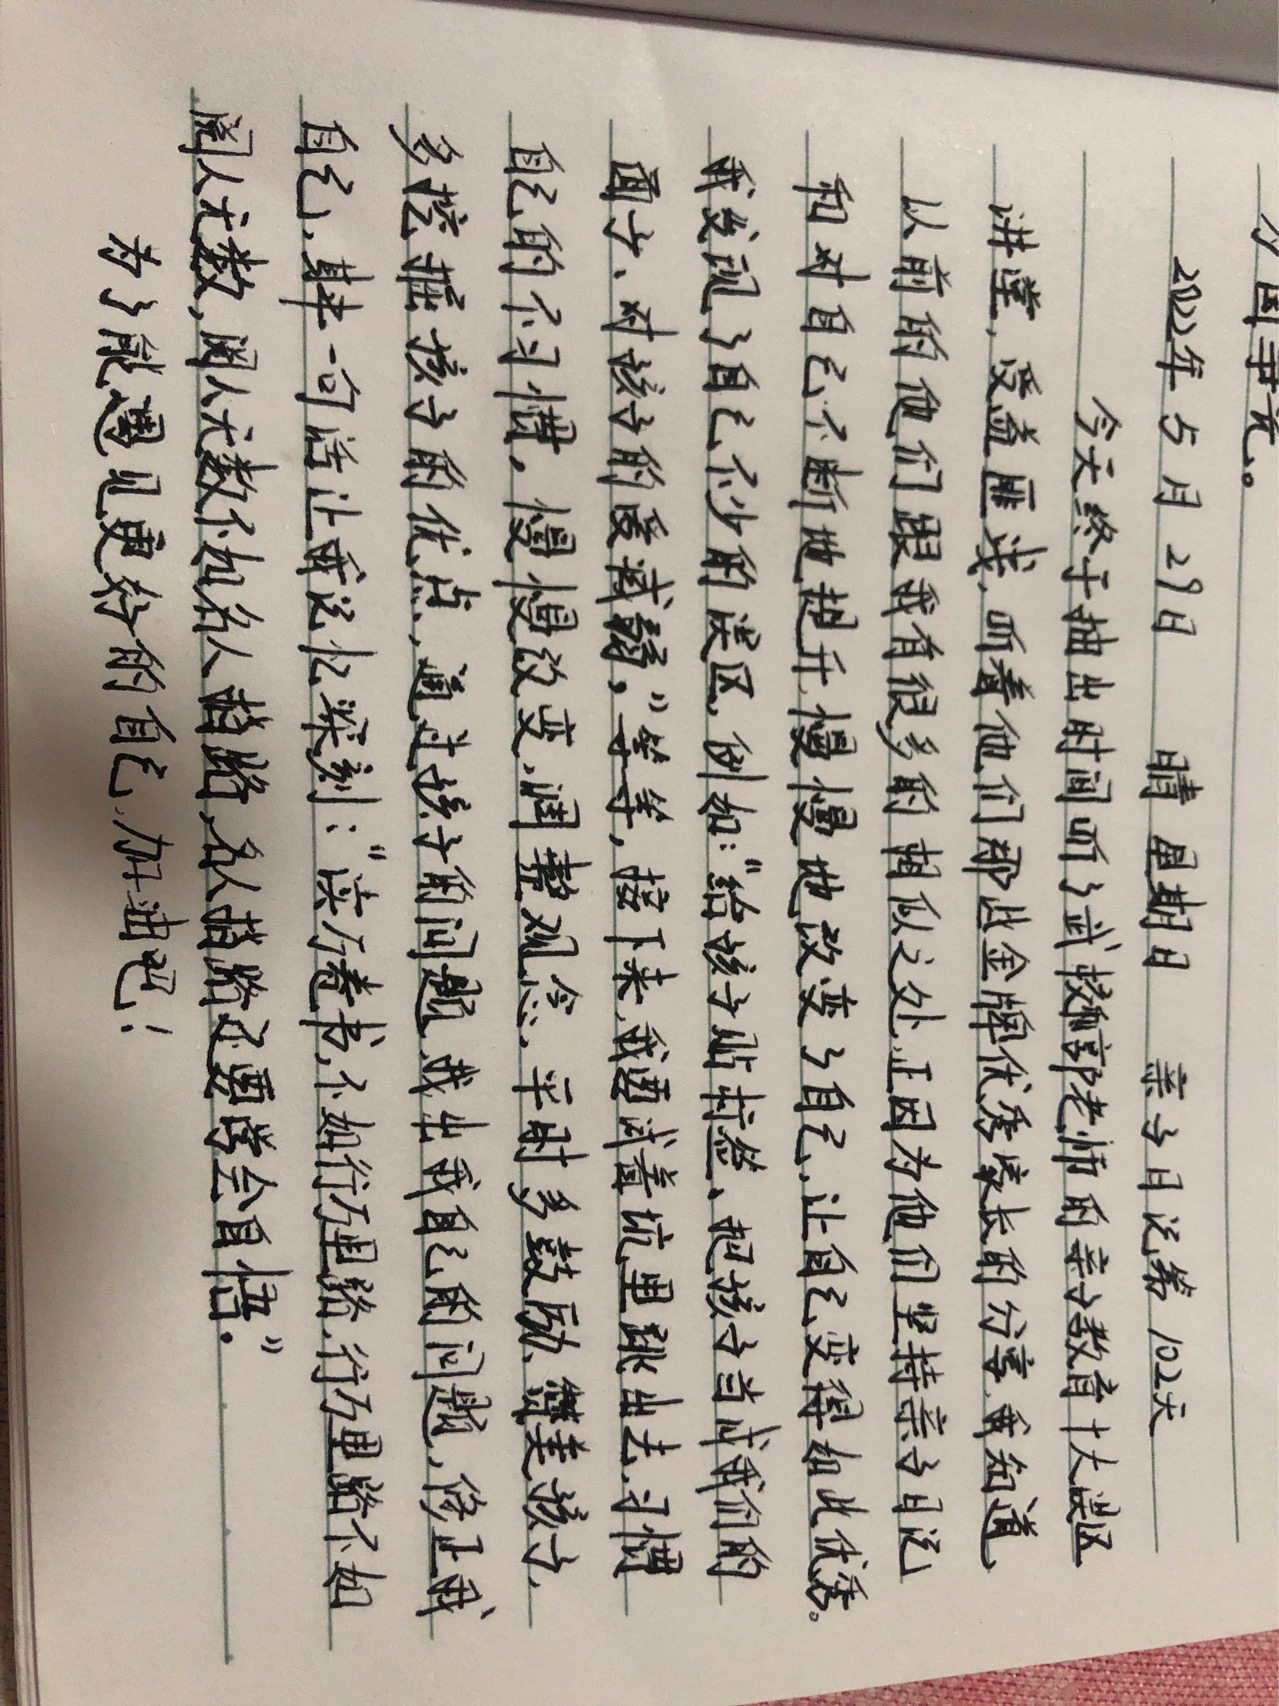 国争光。
2022年5月29日 晴 星期日 亲子日记第102天
今天终于抽出时间听了武校郭老师的亲子教育十大误区
讲堂,受益匪浅,听着他们那些金牌优秀家长的分享,我知道,
以前的他们跟我有很多的相似之处,正因为他们坚持亲子日记
和对自己不断地提升,慢慢地改变了自己,让自己变得如此优秀。
我发现了自己不少的误区,例如:“给孩子贴标签、把孩子当成我们的
面子、对孩子的爱减弱,”等等,接下来,我要试着坑里跳出去,习惯
自己的不习惯,慢慢改变,调整观念,平时多鼓励、赞美孩子,
多挖掘孩子的优点,通过孩子的问题,找出我自己的问题,修正我
自己,其中一句话让我记忆深刻:“读万卷书,不如行万里路,行万里路不如
阅人无数,阅人无数不如名人指路,名人指路还要学会自悟。”
为了能遇见更好的自己,加油吧!